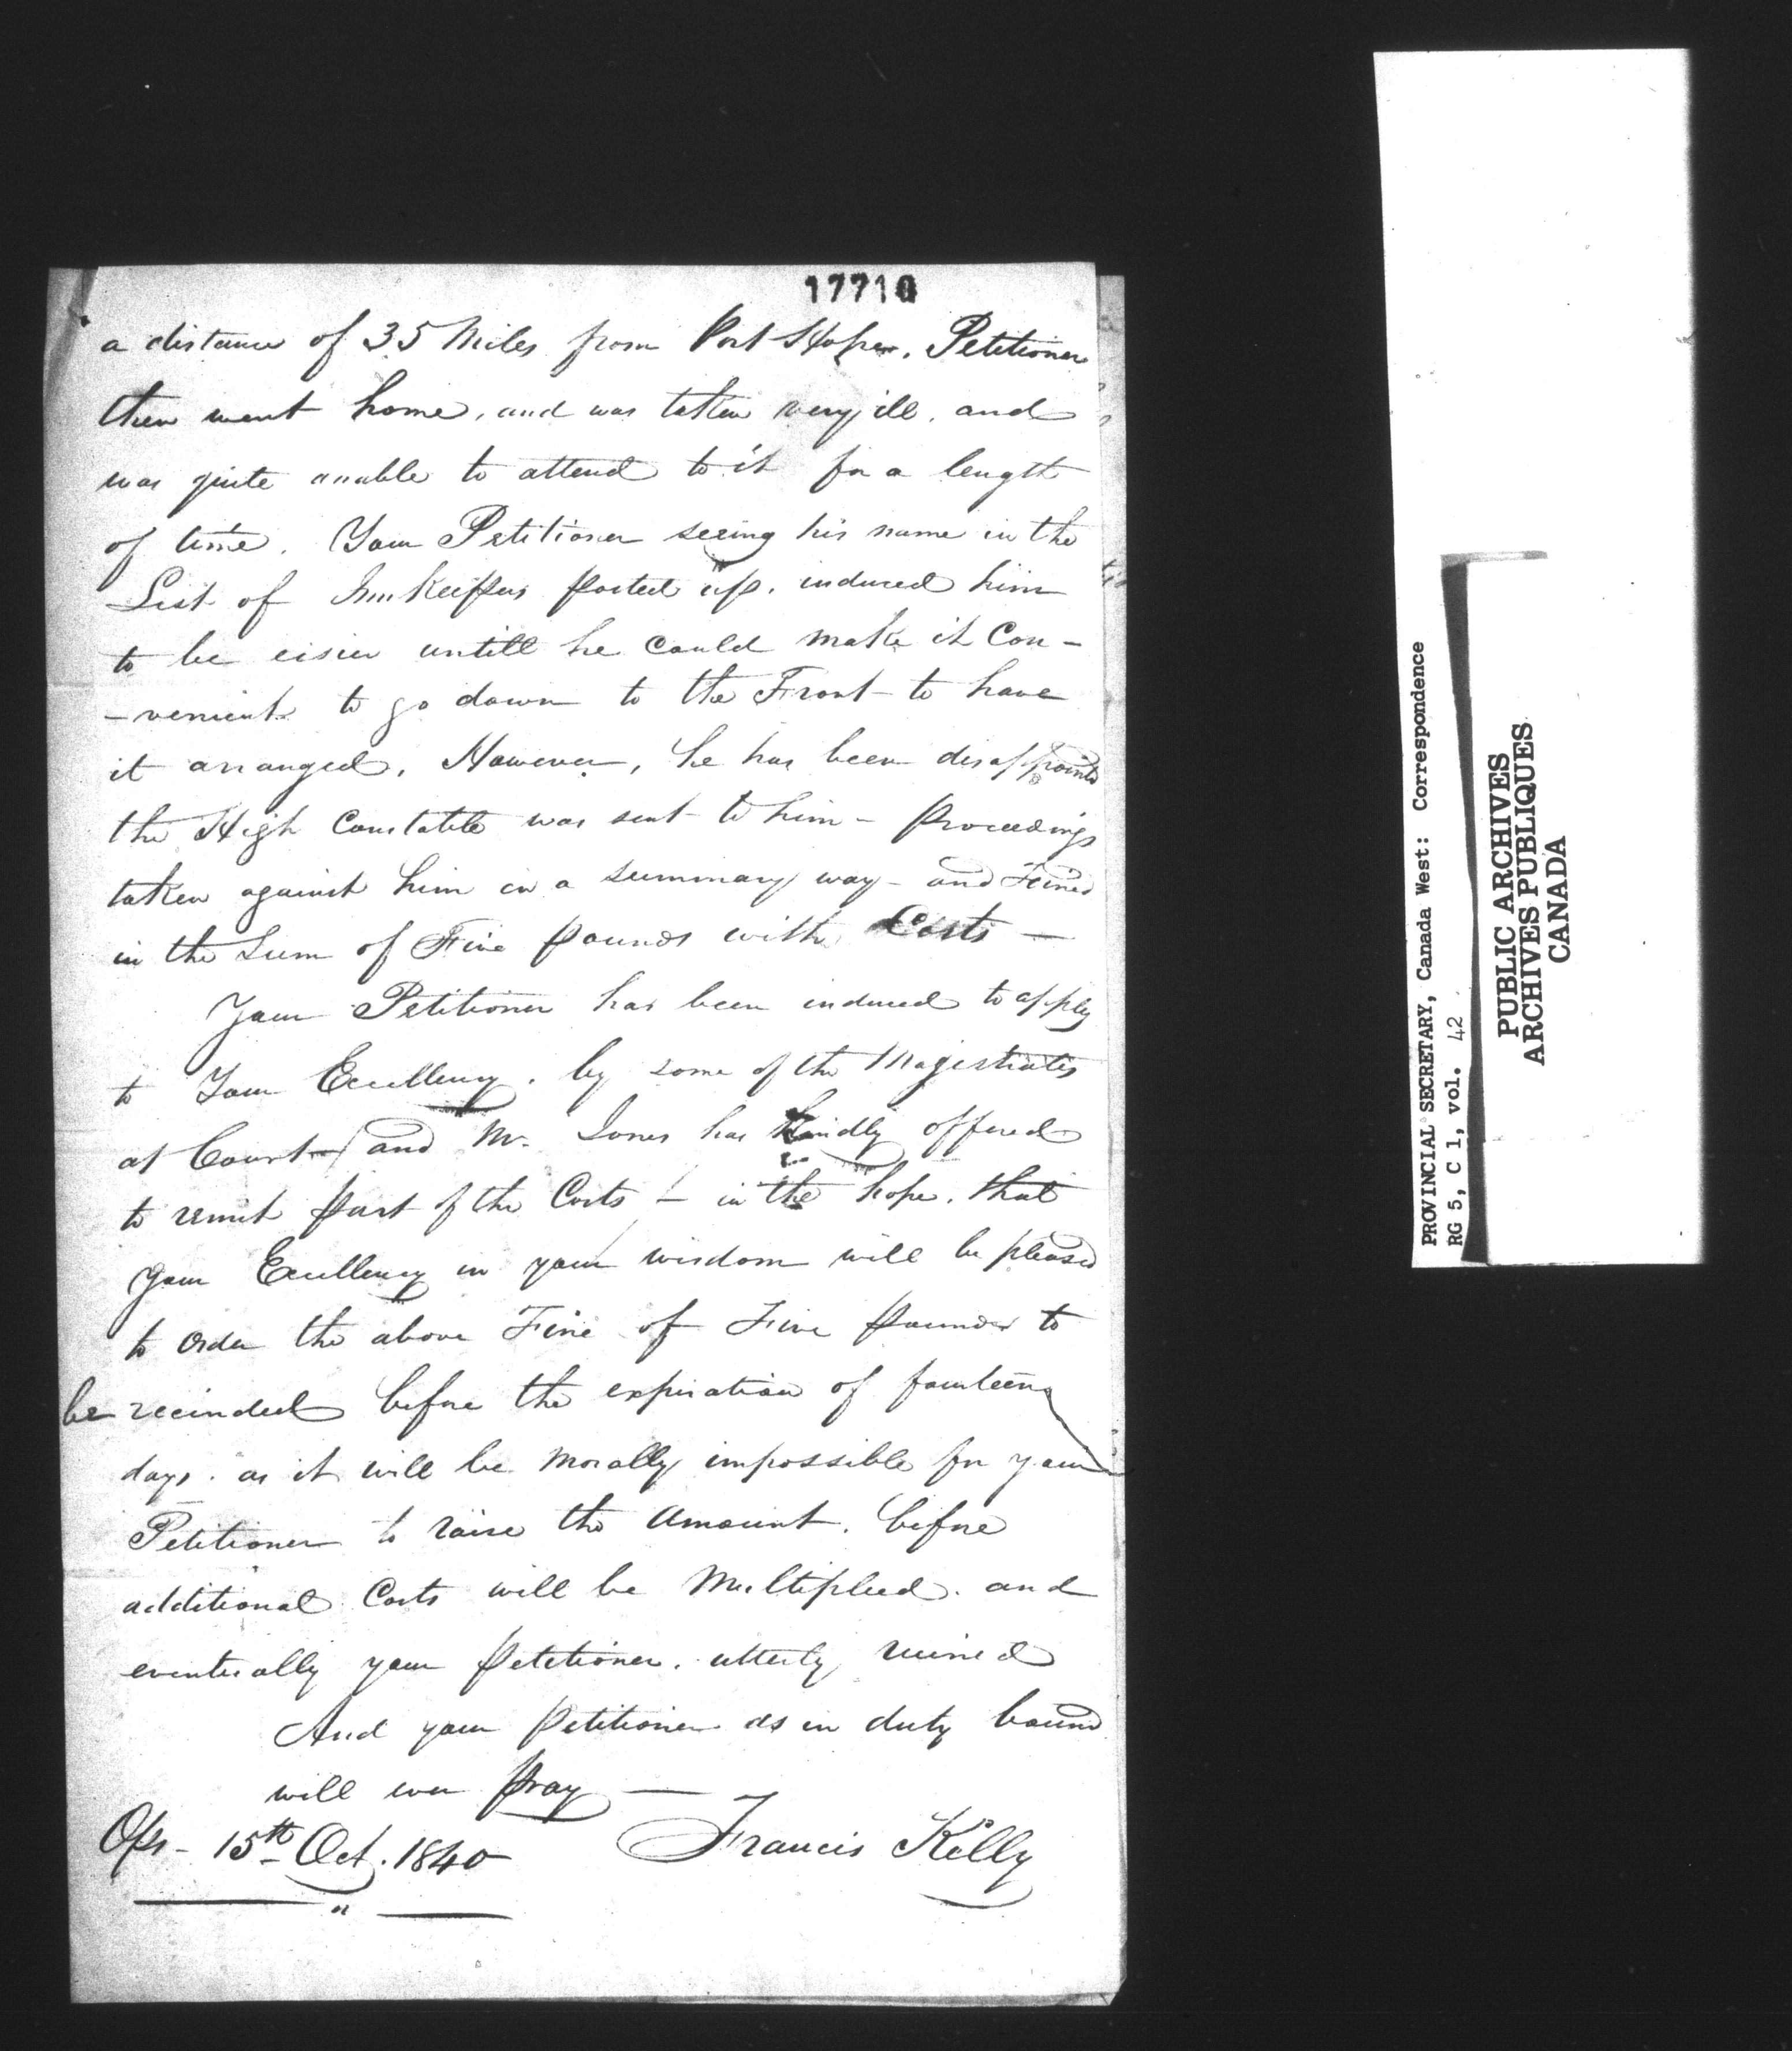 17710
a distance of 35 Miles from Port Hope. Petitioner
then went home, and was taken very ill. and
was quite unable to attend to it for a length
of time. Your Petitioner seeing his name in the
List of Innkeepers posted up. induced him
to be eisier untill he could make it Con-
-venient to go down to the Front to have
it arranged. However, he has been disappointed
the High Constable was sent to him - Proceedings
taken against him in a summary way - and Fined
in the Sum of Five pounds with Costs -
Your Petitioner has been induced to apply
to Your Excellency. by some of the Magistrates
at Court - and Mr. Jones has Kindly offered
to remit part of the Costs - in the hope. that
Your Excellency in your wisdom will be pleased
to order the above Fine of Five pounds to
be recinded before the expiration of fourteen
days. as it will be Morally impossible for your
Petitioner to raise the amount. before
additional Costs will be Multiplied. and
eventually your petitioner. utterly ruined
And your petitioner as in duty bound
will ever pray -
Ops - 15th Oct. 1840 Francis Kelly
PROVINCIAL SECRETARY, Canada West: Correspondence
RG 5, C 1, vol. 42
PUBLIC ARCHIVES
ARCHIVES PUBLIQUES
CANADA